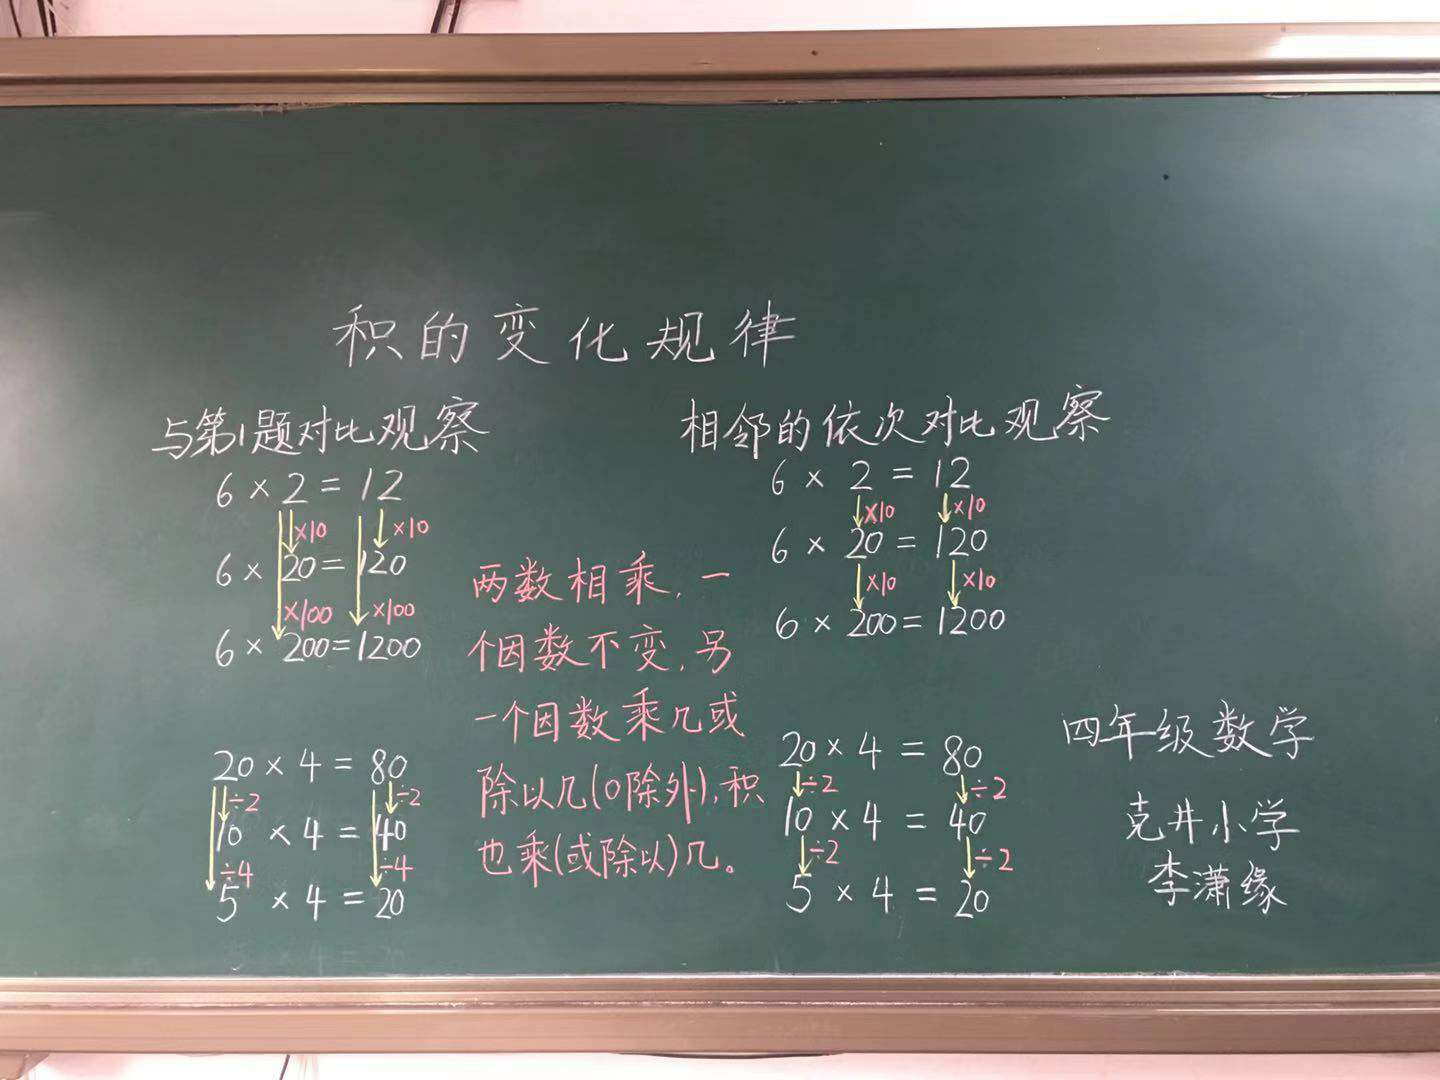 积的变化规律
与第1题对比观察
6×2=12
×10 ×10
6×20=120
×100 ×100
6×200=1200
20×4=80
÷2 ÷2
10×4=40
÷4 ÷4
5×4=20
两数相乘,一
个因数不变,另
一个因数乘几或
除以几(0除外),积
也乘(或除以)几。
相邻的依次对比观察
6×2=12
×10 ×10
6×20=120
×10 ×10
6×200=1200
20×4=80
÷2 ÷2
10×4=40
÷2 ÷2
5×4=20
四年级数学
克井小学
李潇缘